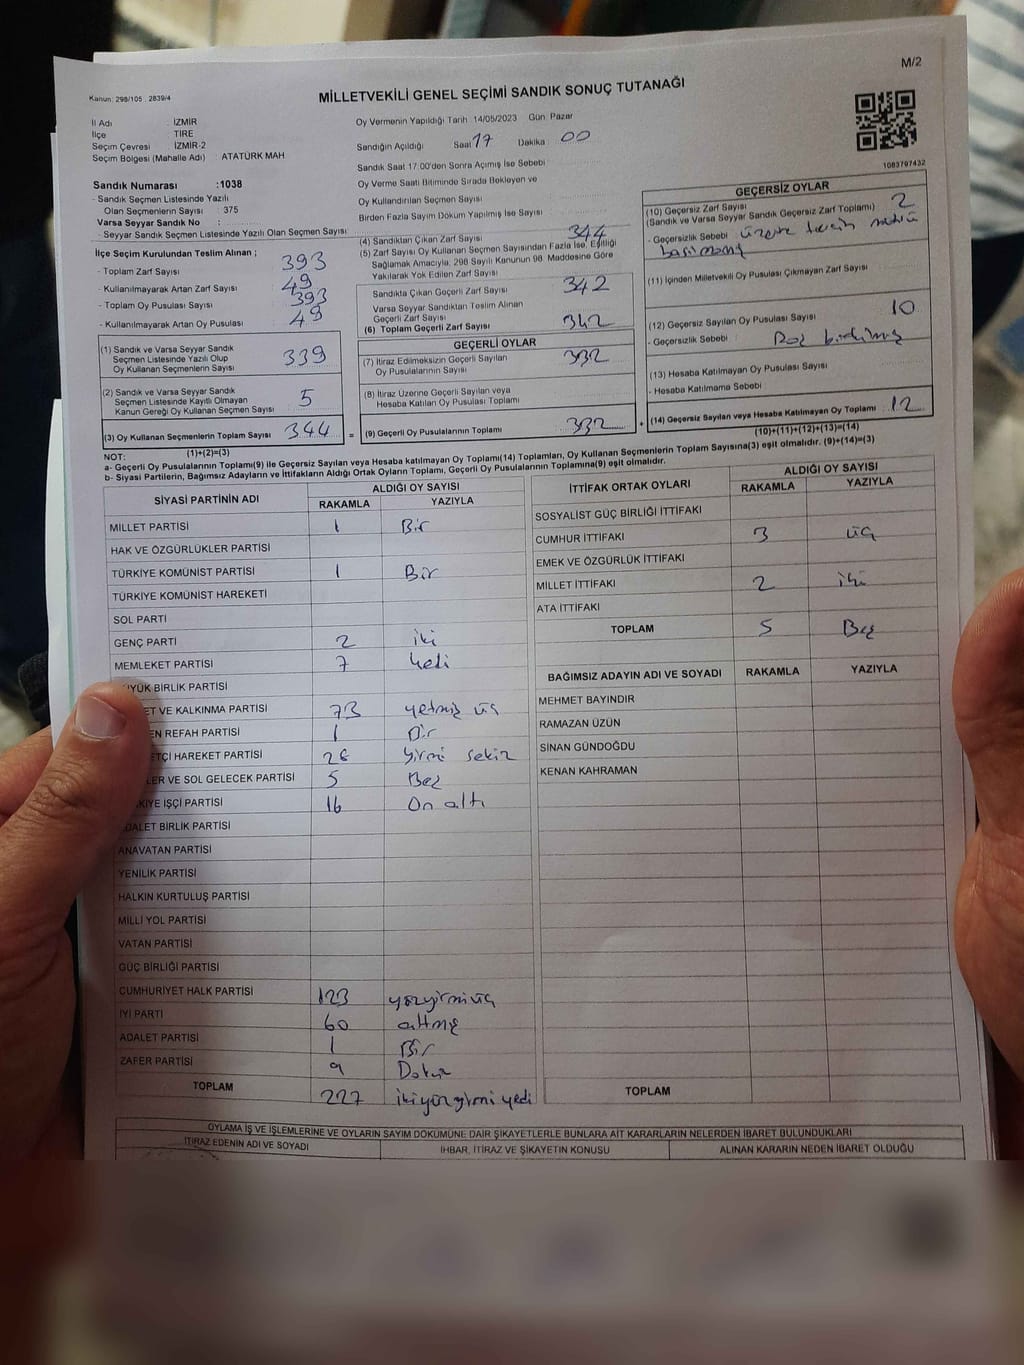 M/2
Kanun: 298/105 , 2839/4
MİLLETVEKİLİ GENEL SEÇİMİ SANDIK SONUÇ TUTANAĞI
İl Adı : İZMİR
İlçe : TİRE
Seçim Çevresi : İZMİR-2
Seçim Bölgesi (Mahalle Adı) : ATATÜRK MAH
Oy Vermenin Yapıldığı Tarih 14/05/2023 Gün: Pazar
Sandığın Açıldığı Saat 17 Dakika 00
Sandık Saat 17:00'den Sonra Açımış İse Sebebi
Oy Verme Saati Bitiminde Sırada Bekleyen ve
Oy Kullandırılan Seçmen Sayısı
Birden Fazla Sayım Döküm Yapılmış İse Sayısı
1083797432
Sandık Numarası :1038
- Sandık Seçmen Listesinde Yazılı
Olan Seçmenlerin Sayısı : 375
Varsa Seyyar Sandık No :
- Seyyar Sandık Seçmen Listesinde Yazılı Olan Seçmen Sayısı
İlçe Seçim Kurulundan Teslim Alınan ;
- Toplam Zarf Sayısı 393
- Kullanılmayarak Artan Zarf Sayısı 49
- Toplam Oy Pusulası Sayısı 393
- Kullanılmayarak Artan Oy Pusulası 49
(1) Sandık ve Varsa Seyyar Sandık
Seçmen Listesinde Yazılı Olup
Oy Kullanan Seçmen Sayısı 339
(2) Sandık ve Varsa Seyyar Sandık
Seçmen Listesinde Kayıtlı Olmayan
Kanun Gereği Oy Kullanan Seçmen Sayısı 5
(3) Oy Kullanan Seçmenlerin Toplam Sayısı 344 =
(1)+(2)=(3)
(4) Sandıktan Çıkan Zarf Sayısı 344
(5) Zarf Sayısı Oy Kullanan Seçmen Sayısından Fazla İse, Eşitliği
Sağlamak Amacıyla, 298 Sayılı Kanunun 98. Maddesine Göre
Yakılarak Yok Edilen Zarf Sayısı
Sandıkta Çıkan Geçerli Zarf Sayısı 342
Varsa Seyyar Sandıktan Teslim Alınan
Geçerli Zarf Sayısı
(6) Toplam Geçerli Zarf Sayısı 342
GEÇERLİ OYLAR
(7) İtiraz Edilmeksizin Geçerli Sayılan
Oy Pusulalarının Sayısı 332
(8) İtiraz Üzerine Geçerli Sayılan veya
Hesaba Katılan Oy Pusulası Toplamı
(9) Geçerli Oy Pusulalarının Toplamı 332 +
GEÇERSİZ OYLAR
(10) Geçersiz Zarf Sayısı 2
(Sandık ve Varsa Seyyar Sandık Geçersiz Zarf Toplamı)
- Geçersizlik Sebebi üzerine tercih mührü
basılmamış
(11) İçinden Milletvekili Oy Pusulası Çıkmayan Zarf Sayısı
(12) Geçersiz Sayılan Oy Pusulası Sayısı 10
- Geçersizlik Sebebi :
(13) Hesaba Katılmayan Oy Pusulası Sayısı
- Hesaba Katılmama Sebebi :
(14) Geçersiz Sayılan veya Hesaba Katılmayan Oy Toplamı 12
(10)+(11)+(12)+(13)=(14)
NOT:
a- Geçerli Oy Pusulalarının Toplamı(9) ile Geçersiz Sayılan veya Hesaba katılmayan Oy Toplamı(14) Toplamları, Oy Kullanan Seçmenlerin Toplam Sayısına(3) eşit olmalıdır. (9)+(14)=(3)
b- Siyasi Partilerin, Bağımsız Adayların ve İttifakların Aldığı Ortak Oyların Toplamı, Geçerli Oy Pusulalarının Toplamına(9) eşit olmalıdır.
SİYASİ PARTİNİN ADI ALDIĞI OY SAYISI
RAKAMLA YAZIYLA
MİLLET PARTİSİ 1 Bir
HAK VE ÖZGÜRLÜKLER PARTİSİ
TÜRKİYE KOMÜNİST PARTİSİ 1 Bir
TÜRKİYE KOMÜNİST HAREKETİ
SOL PARTİ
GENÇ PARTİ 2 iki
MEMLEKET PARTİSİ 7 Yedi
YÜK BİRLİK PARTİSİ
ET VE KALKINMA PARTİSİ 73 yetmiş üç
EN REFAH PARTİSİ 1 Bir
ETÇİ HAREKET PARTİSİ 28 Yirmi sekiz
LER VE SOL GELECEK PARTİSİ 5 Beş
KİYE İŞÇİ PARTİSİ 16 On altı
DALET BİRLİK PARTİSİ
ANAVATAN PARTİSİ
YENİLİK PARTİSİ
HALKIN KURTULUŞ PARTİSİ
MİLLİ YOL PARTİSİ
VATAN PARTİSİ
GÜÇ BİRLİĞİ PARTİSİ
CUMHURİYET HALK PARTİSİ 123 yüzyirmiüç
İYİ PARTİ 60 altmış
ADALET PARTİSİ 1 Bir
ZAFER PARTİSİ 9 Dokuz
TOPLAM 227 ikiyüzyirmi yedi
İTTİFAK ORTAK OYLARI ALDIĞI OY SAYISI
RAKAMLA YAZIYLA
SOSYALİST GÜÇ BİRLİĞİ İTTİFAKI
CUMHUR İTTİFAKI 3 üç
EMEK VE ÖZGÜRLÜK İTTİFAKI
MİLLET İTTİFAKI 2 iki
ATA İTTİFAKI
TOPLAM 5 Beş
BAĞIMSIZ ADAYIN ADI VE SOYADI RAKAMLA YAZIYLA
MEHMET BAYINDIR
RAMAZAN ÜZÜN
SİNAN GÜNDOĞDU
KENAN KAHRAMAN
TOPLAM
OYLAMA İŞ VE İŞLEMLERİNE VE OYLARIN SAYIM DÖKÜMÜNE DAİR ŞİKAYETLERLE BUNLARA AİT KARARLARIN NELERDEN İBARET BULUNDUKLARI
İTİRAZ EDENİN ADI VE SOYADI İHBAR, İTİRAZ VE ŞİKAYETİN KONUSU ALINAN KARARIN NEDEN İBARET OLDUĞU